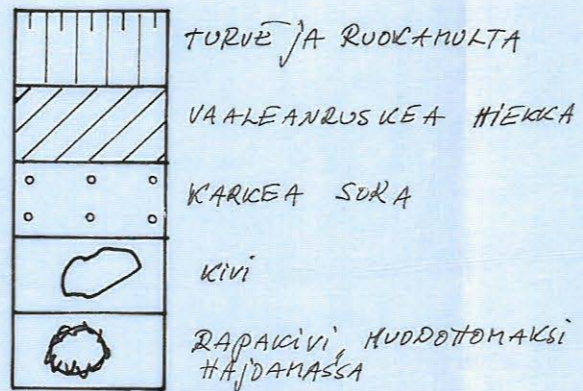 TURVE jA RUOKAMULTA
VAALEANRUSKEA HIEKKA
KARKEA SORA
KIVI
RAPAKIVI, MUODOTTOMAKSI
HAJOAMASSA